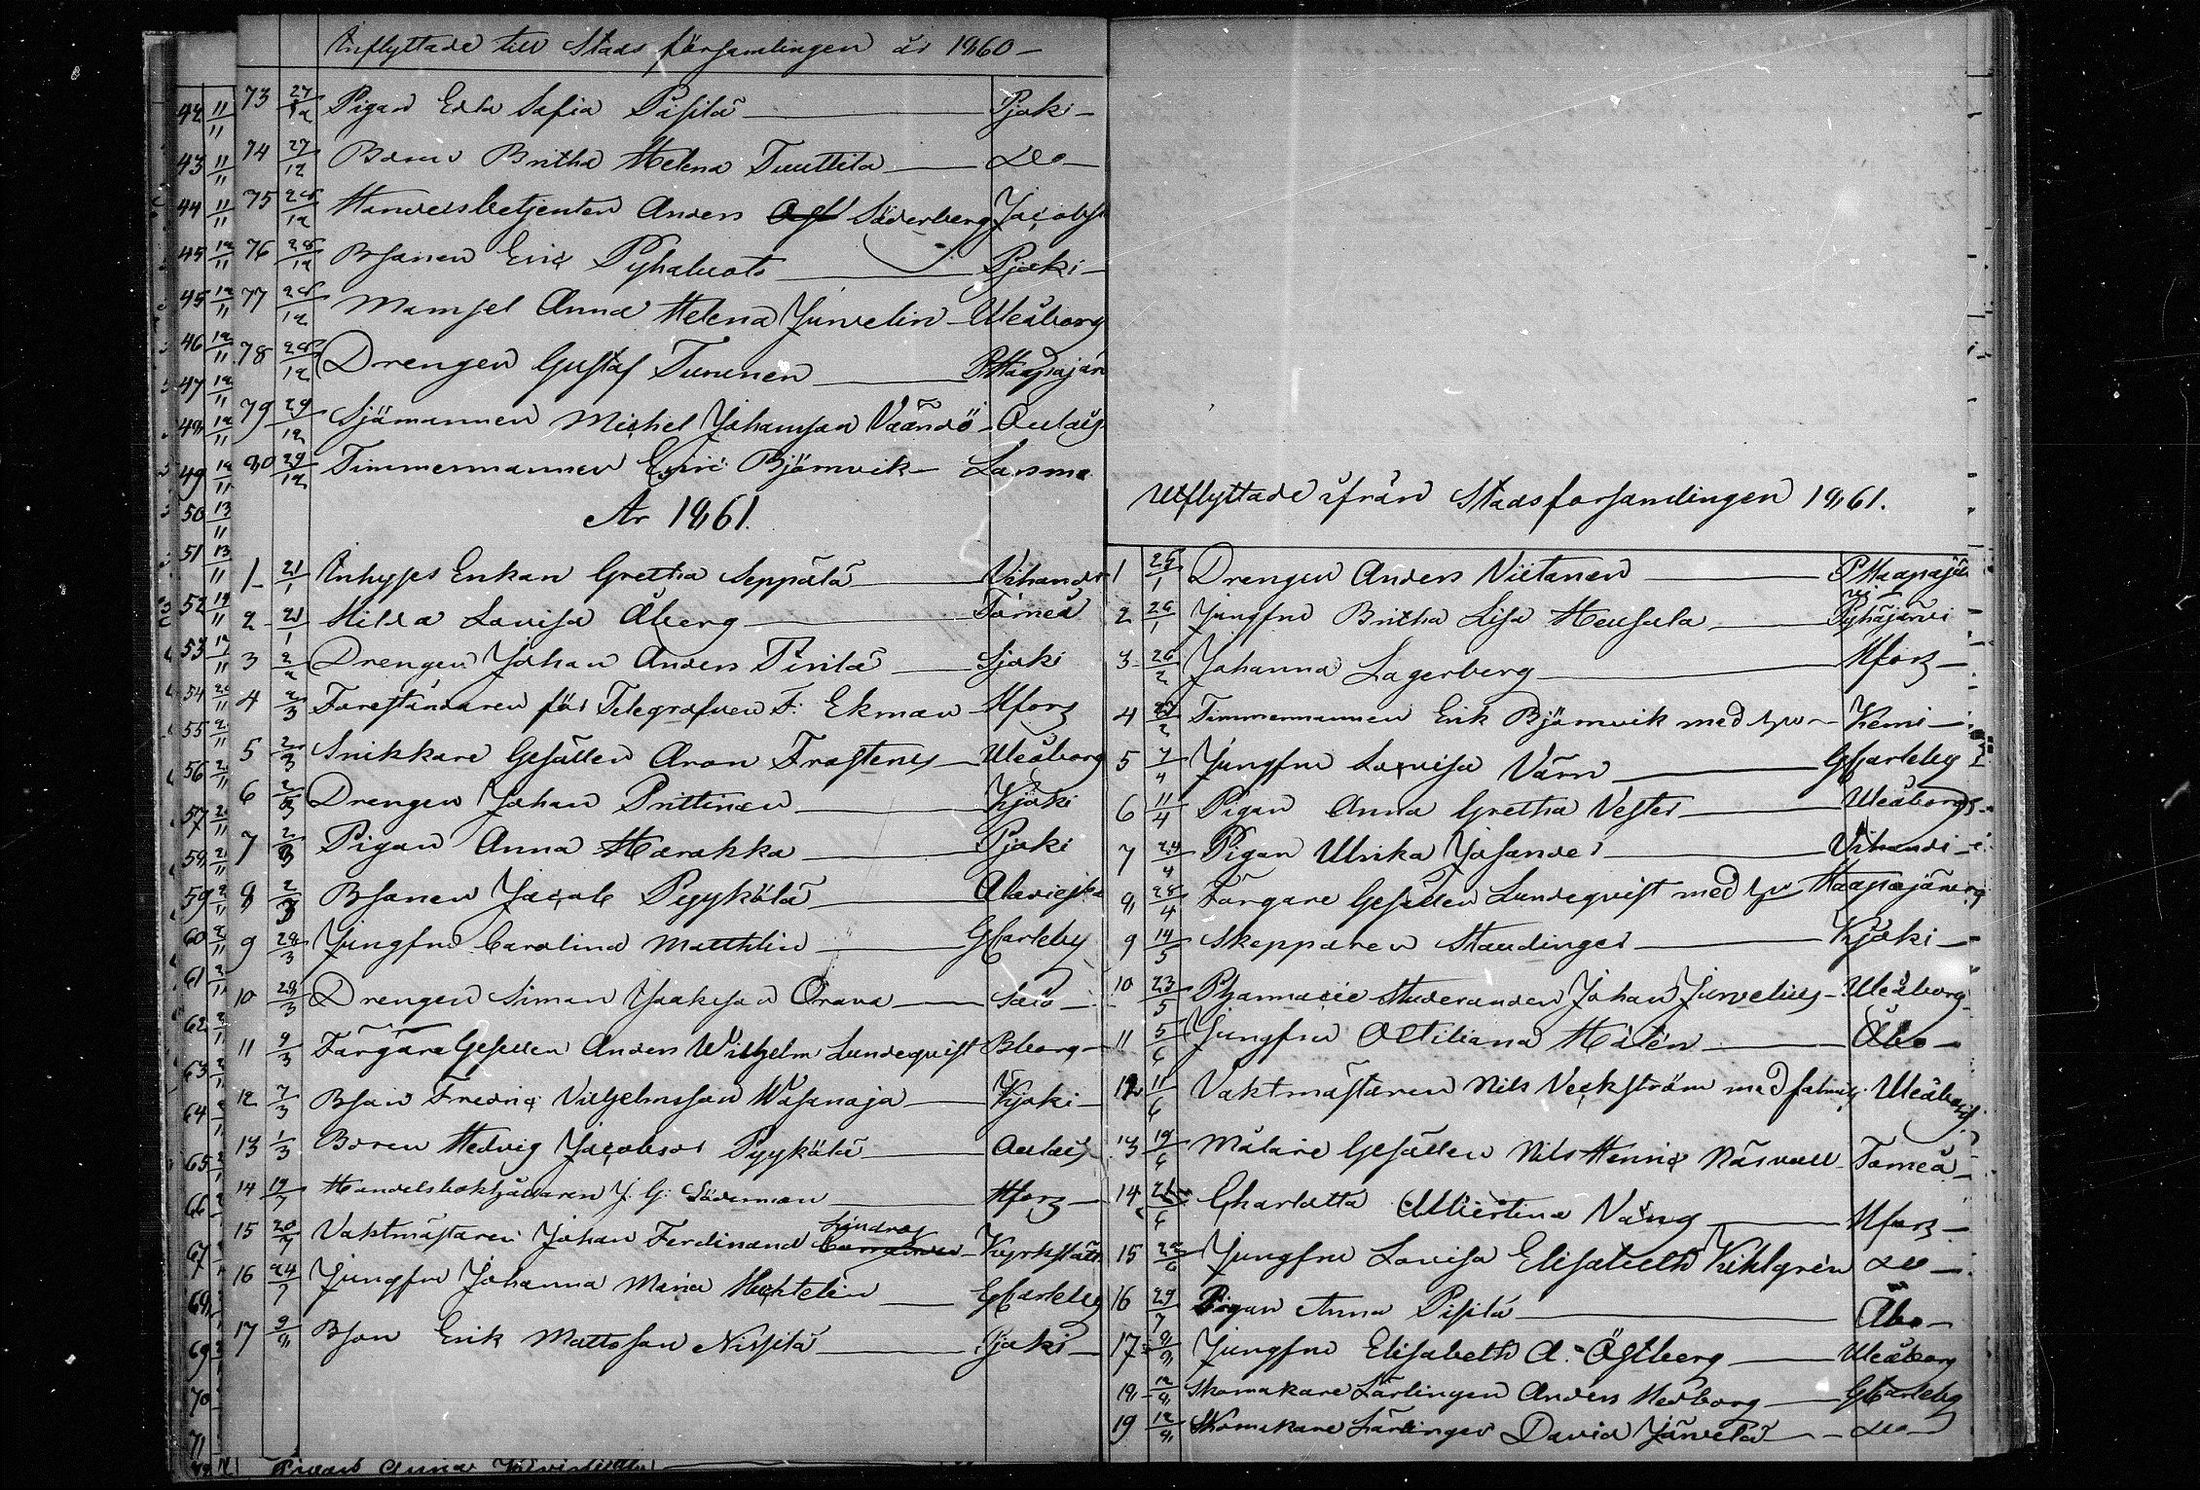 Inflyttade till Stads församlingen år 1860 –
73 27/12 Pigan Erla Safia Pisilä — Pjoki –
74 27/12 Britha Helena Tuuttila — do –
75 28/12 Handelsbetjenten Anders Söderberg Jacobst
76 28/12 Bsonen Eric — Pjoki –
77 28/12 Mamsel Anna Helena Junvelin – Uleåborg
78 28/12 Drengen Gustaf Turunen — PHaapajär
79 29/12 Sjömannen Michel Johansson – Oulais
80 29/12 Timmermannen Eric Björnvik – Larsmo
År 1861.
1 21/1 Inhyses Enkan Gretha Seppälä — Vihandi
2 21/1 Hilda Lovisa Åberg — Torneå
3 2/2 Drengen Johan Anders Pirilä — Sjoki
4 2/3 Föreståndaren för Telegrafven F: Ekman – Hfors
5 2/3 Snikkare Gesällen Aron Frosterus – Uleåborg
6 2/3 Drengen Johan Prittinen — Kjoki
7 2/3 Pigan Anna Harakka — Pjoki
8 2/3 Bsonen Jacob Pyykölä — Alavieska
9 28/3 Jungfru Carolina Matthlin — GCarleby
10 28/3 Drengen Simon Jaakson Orava — Salo –
11 9/3 Färgare Gesellen Anders Wilhelm Lundeqvist Bborg –
12 7/3 Bson Fredric Vilhelmsson Wasanoja — Kjoki –
13 1/3 Hedvig Jacobsdr Pyykölä — Oulais
14 19/7 Handelsbokhållaren J. G. Söderman — Hfors –
15 20/7 Vaktmästaren Johan Ferdinand Lindroos – Kyrkslätt
16 24/7 Jungfru Johanna Maria — GCarleby
17 9/8 Bson Erik Mattsson — Pjoki –
Pigan Anna
Utflyttade ifrån Stadsforsamlingen 1861.
1 Drengen Anders Vietanen — PHaapajär
vi
2 26/1 Jungfru Britha Lisa Heusala — Pyhäjärvi
3 26/2 Johanna Lagerberg — Hfors –
4 27/2 Timmermannen Erik Björnvik med hru – Kemi –
5 7/4 Jungfru Lovisa Värn — GCarleby
6 11/4 Pigan Anna Gretha Vester — Uleåborg
7 24/4 Pigan Ulrika Josander — Vihandi –
8 28/4 Färgare Gesällen Lundeqvist med hru Haapajärvi
9 14/5 Skepparen Staudinger — Kjoki –
10 23/5 Pharmacie Studeranden Johan Junvelius – Uleåborg
11 5/6 Jungfru Ottiliana Hilén — Åbo –
12 11/6 Vaktmästaren Nils Veckström med familj. Uleåborg
13 19/6 Målare Gesällen Nils Henric Näsvall Torneå –
14 21/6 Charlotta Albertina Väng — Hfors –
15 22/6 Jungfru Lovisa Elisabeth Kihlgrén do –
16 29/7 Pigan Anna Pisilä — Åbo –
17 9/8 Jungfru Elisabeth A. Östberg — Uleåborg
18 12/8 Skomakare Lärlingen Anders Hedborg — GCarleby
19 12/8 Skomakare Lärlingen David Järvelä — do –